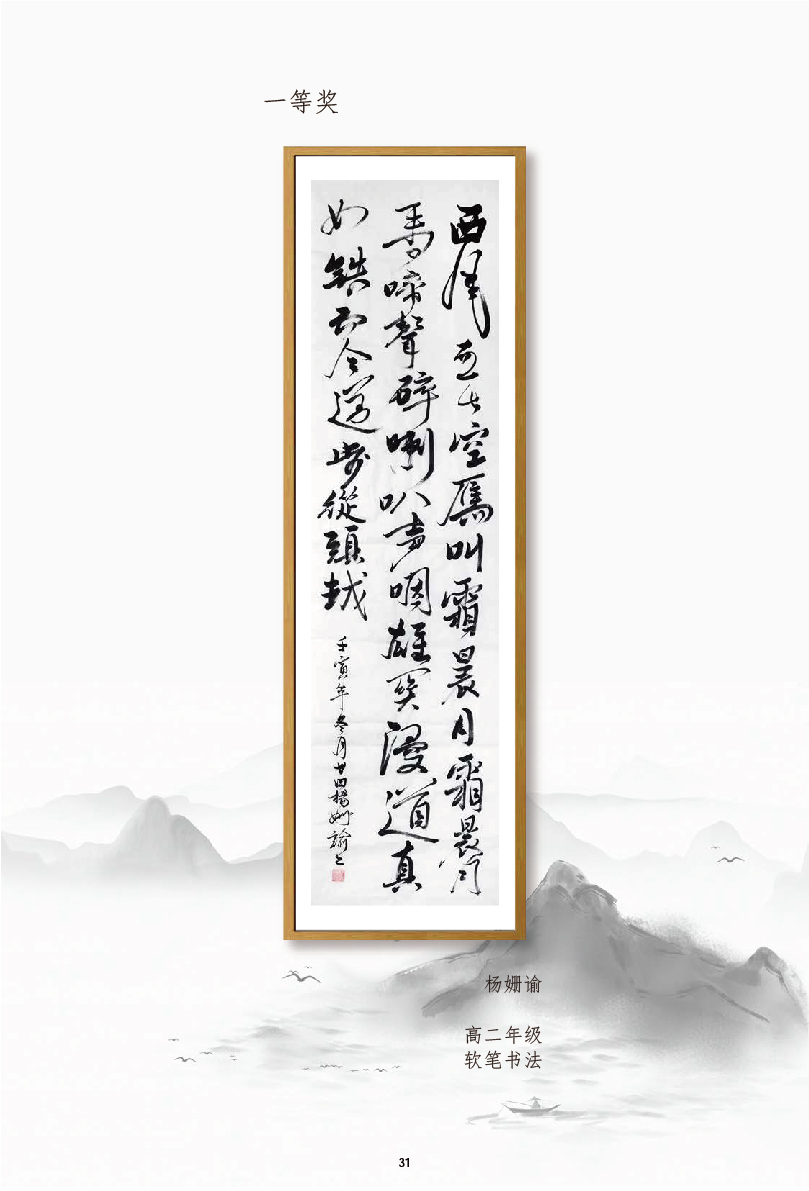 一等奖
西風烈长空雁叫霜晨月霜晨月
馬啼聲碎喇叭声咽雄関漫道真
如鉄而今邁步從頭越
壬寅年冬月廿四楊姍諭书
杨姗谕
高二年级
软笔书法
31